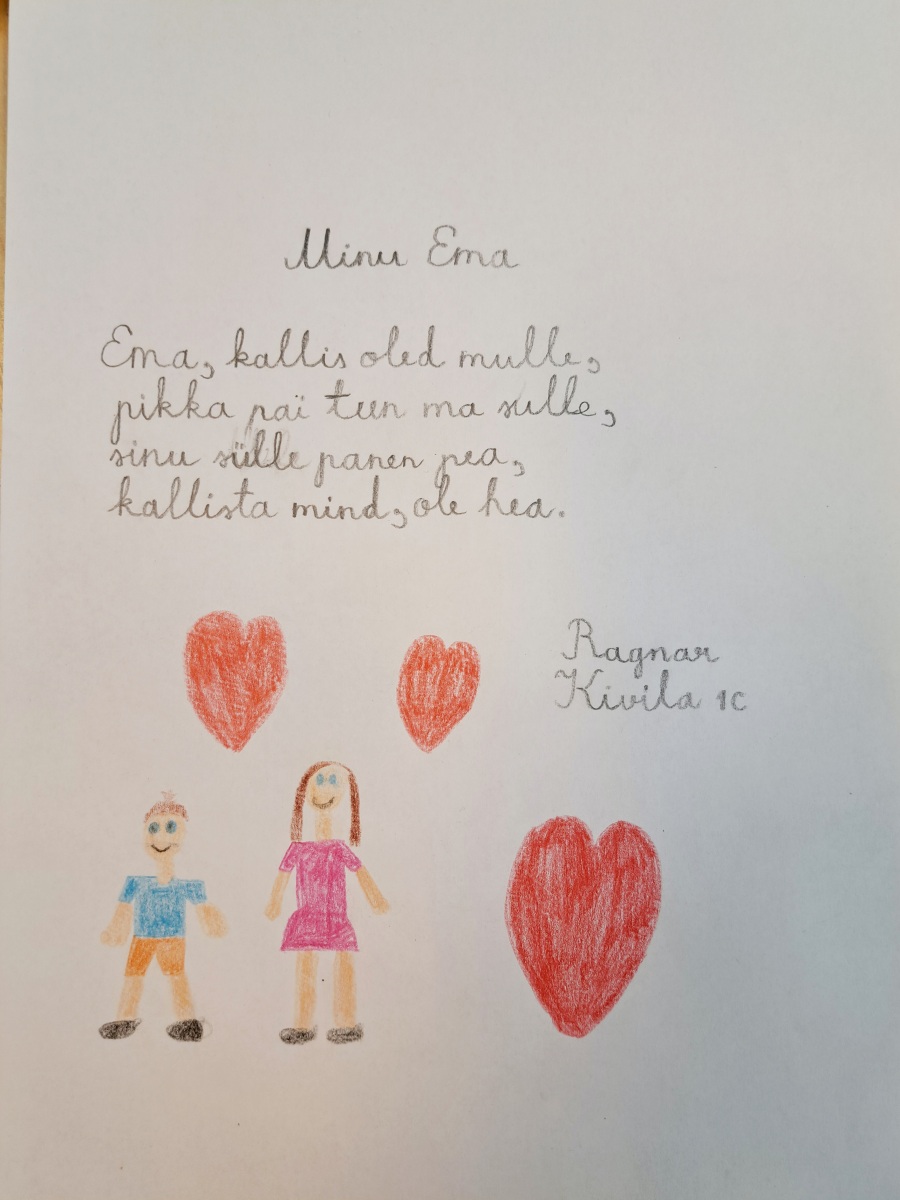 Minu Ema
Ema, kallis oled mulle,
pikka pai teen ma sulle,
sinu sülle panen pea,
kallista mind, ole hea.
Ragnar
Kivila 1c